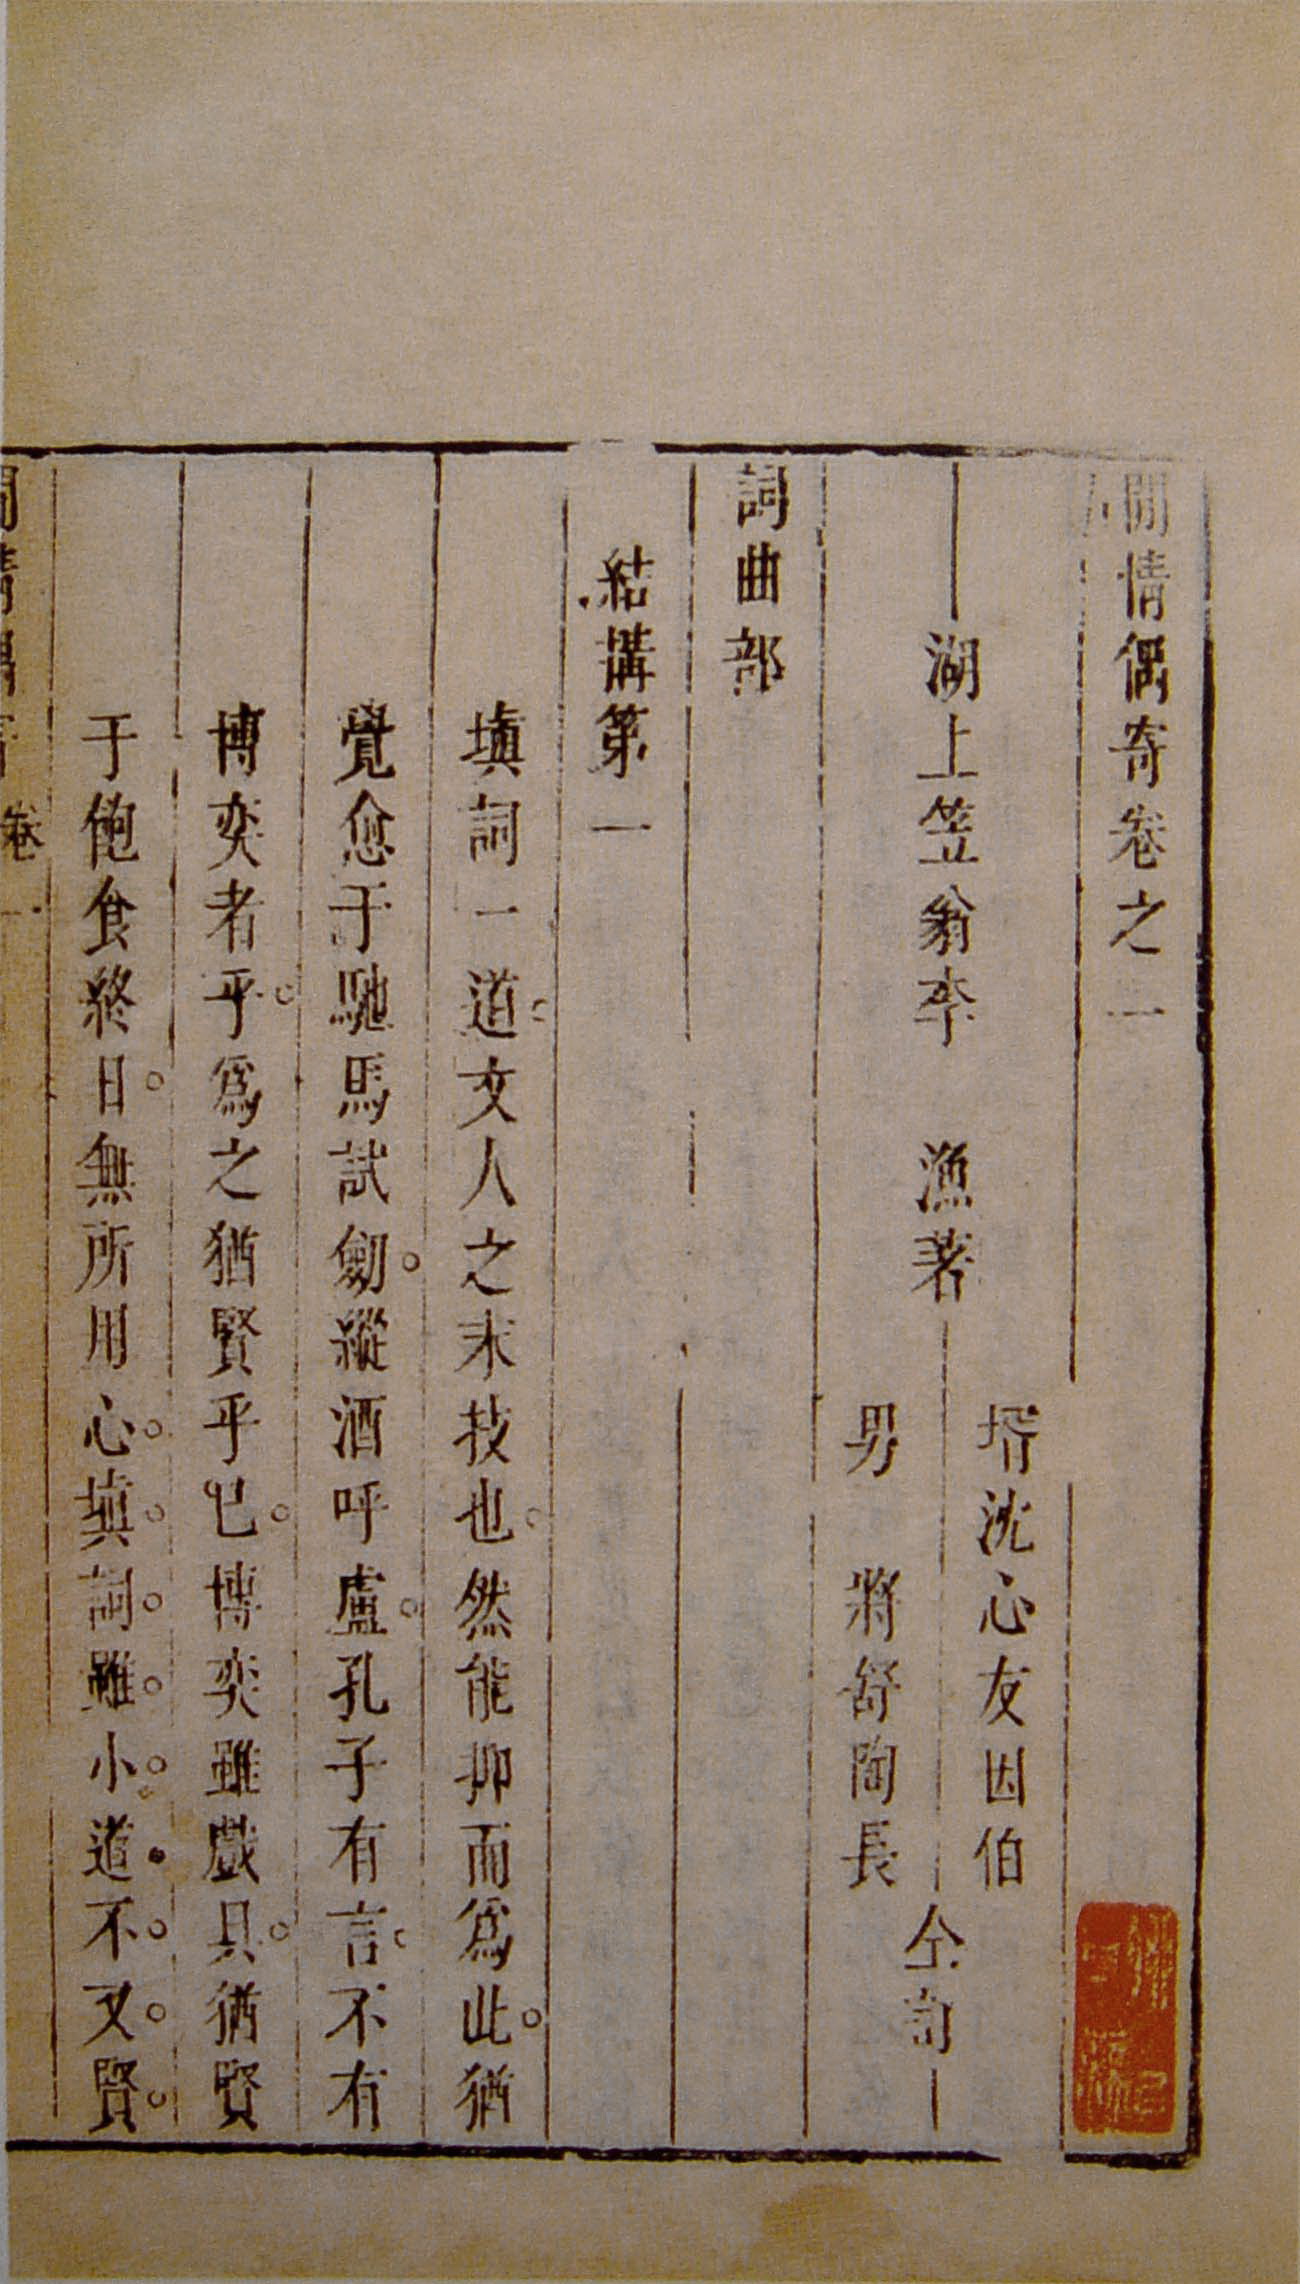 閒情偶寄卷之一
湖上笠翁李　漁著
壻沈心友因伯
男　將舒陶長
仝訂
詞曲部
結搆第一
塡詞一道文人之末技也然能抑而爲此猶
覺愈于馳馬試劒縱酒呼盧孔子有言不有
博奕者乎爲之猶賢乎已博奕雖戲具猶賢
于飽食終日無所用心塡詞雖小道不又賢
閒情偶寄 卷一